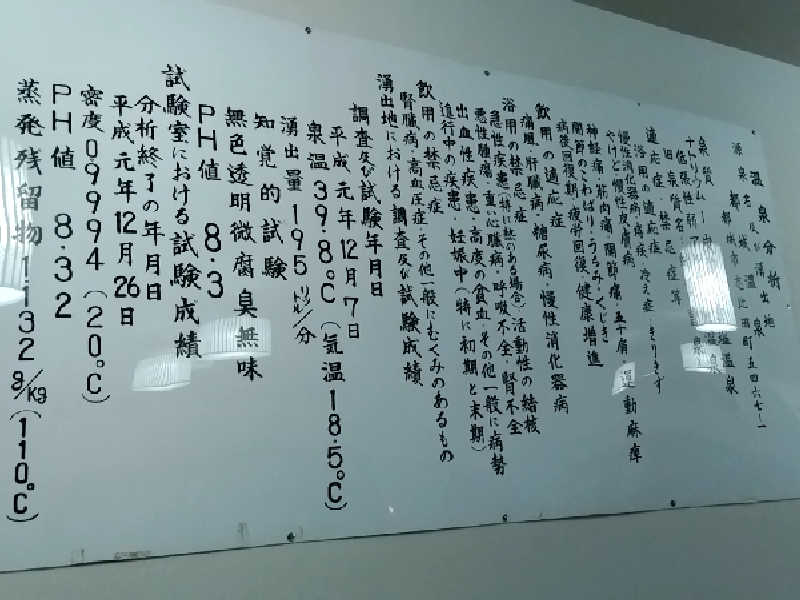 温泉分析
及び湧出地
源泉名 城 温泉
都城市志比田町五四六七ー一
泉質 ナトリウムー
低張性弱ア 温泉
泉質別禁忌症等
適応症
浴用の適応症
慢性消化器病・痔疾・冷え症・きりきず
やけど・慢性皮膚病
神経痛・筋肉痛・関節痛・五十肩・運動麻痺
関節のこわばり・うちみ・くじき
病後回復期・疲労回復・健康増進
飲用の適応症
痛風・肝臓病・糖尿病・慢性消化器病
浴用の禁忌症
急性疾患(特に熱のある場合)活動性の結核
悪性腫瘍・重い心臓病・呼吸不全・腎不全
出血性疾患・高度の貧血・その他一般に病勢
進行中の疾患・妊娠中(特に初期と末期)
飲用の禁忌症
腎臓病・高血圧症・その他一般にむくみのあるもの
湧出地における調査及び試験成績
調査及び試験年月日
平成元年12月7日
泉温39.8℃(気温18.5℃)
湧出量 195リットル/分
知覚的試験
無色透明微腐臭無味
PH値 8.3
試験室における試験成績
分析終了の年月日
平成元年12月26日
密度0.9994(20℃)
PH値 8.32
蒸発残留物1.132g/kg(110℃)